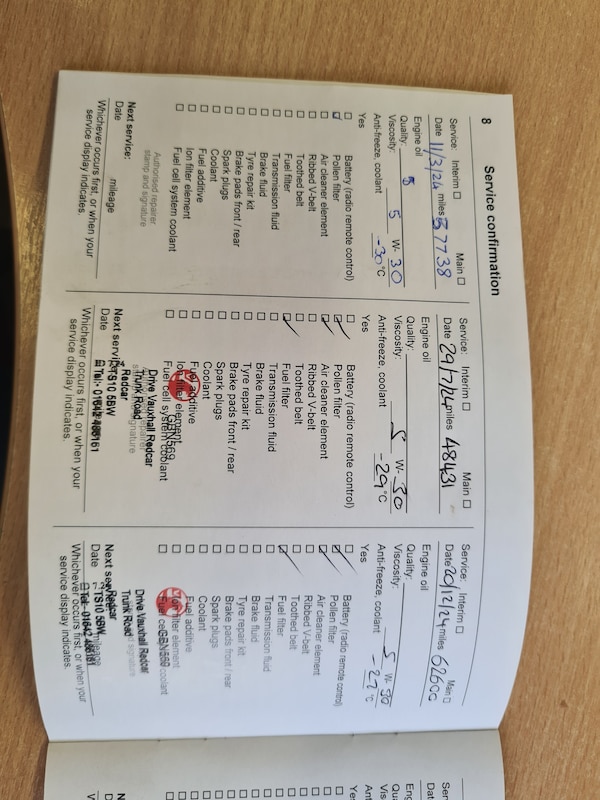 8
Service confirmation
Service: Interim ☐ Main ☐
Date 11/3/24 miles 37738
Engine oil
Quality: 5
Viscosity: 5 W- 30
Anti-freeze, coolant -30 °C
Yes
☐ Battery (radio remote control)
☑ Pollen filter
☐ Air cleaner element
☐ Ribbed V-belt
☐ Toothed belt
☐ Fuel filter
☐ Transmission fluid
☐ Brake fluid
☐ Tyre repair kit
☐ Brake pads front / rear
☐ Spark plugs
☐ Coolant
☐ Fuel additive
☐ Ion filter element
☐ Fuel cell system coolant
Authorised repairer
stamp and signature
Next service:
Date mileage
Whichever occurs first, or when your
service display indicates.
Service: Interim ☐ Main ☐
Date 29/7/24 miles 48431
Engine oil
Quality:
Viscosity: 5 W- 30
Anti-freeze, coolant -29 °C
Yes
☐ Battery (radio remote control)
☑ Pollen filter
☑ Air cleaner element
☐ Ribbed V-belt
☐ Toothed belt
☑ Fuel filter
☐ Transmission fluid
☐ Brake fluid
☐ Tyre repair kit
☐ Brake pads front / rear
☐ Spark plugs
☐ Coolant
☐ Fuel additive
☐ Ion filter element
☐ Fuel cell system coolant
Drive Vauxhall Redcar
Trunk Road
Redcar
TS10 5BW
Tel:- 01642 486161
Next service:
Date
Whichever occurs first, or when your
service display indicates.
Service: Interim ☐ Main ☐
Date 20/12/24 miles 62600
Engine oil
Quality:
Viscosity: 5 W- 30
Anti-freeze, coolant -27 °C
Yes
☐ Battery (radio remote control)
☑ Pollen filter
☑ Air cleaner element
☐ Ribbed V-belt
☐ Toothed belt
☑ Fuel filter
☐ Transmission fluid
☐ Brake fluid
☐ Tyre repair kit
☐ Brake pads front / rear
☐ Spark plugs
☐ Coolant
☐ Fuel additive
☐ Ion filter element
☐ Fuel cell system coolant
Drive Vauxhall Redcar
Trunk Road
Redcar
TS10 5BW
Tel:- 01642 486161
Next service:
Date mileage
Whichever occurs first, or when your
service display indicates.